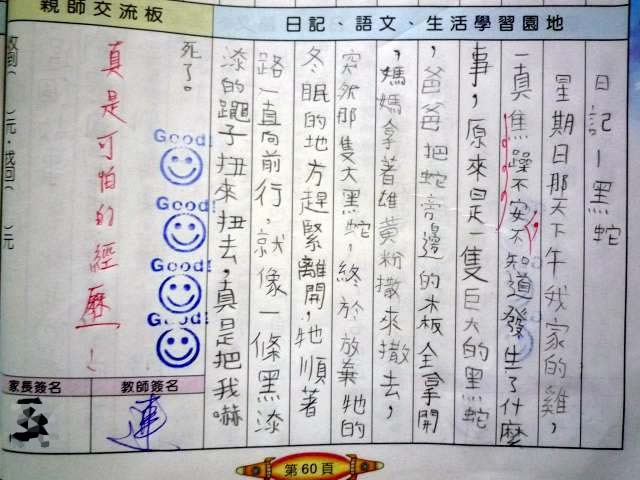 親師交流板
日記、語文、生活學習園地
日記－黑蛇
星期日那天下午我家的雞，
一真焦躁不安不知道發生了什麼
事，原來是一隻巨大的黑蛇
，爸爸把蛇旁邊的木板全拿開
，媽媽拿著雄黃粉撒來撒去，
突然那隻大黑蛇，終於放棄牠的
冬眠的地方趕緊離開，牠順著
路一直向前行，就像一條黑漆
漆的繩子扭來扭去，真是把我嚇
死了。
Good!
Good!
Good!
Good!
真是可怕的經歷！
元，找回（　）元
家長簽名
教師簽名
連
第60頁